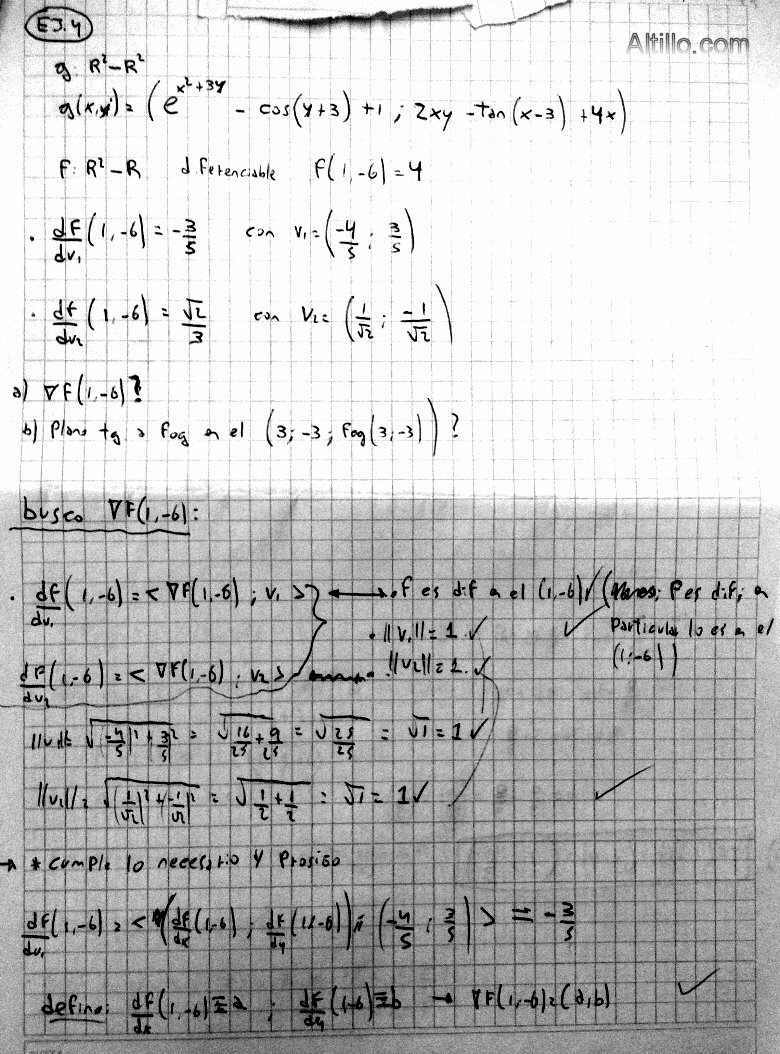 EJ.4
Altillo.com
g: R²-R²
g(x,y) = (e^{x²+3y} - cos(y+3) +1 ; 2xy - tan(x-3) + 4x)
F: R²-R diferenciable F(1,-6)=4
· dF/dv₁ (1,-6) = -3/5 con v₁=(-4/5 ; 3/5)
· df/dv₂ (1,-6) = √2/3 con V₂= (1/√2 ; -1/√2)
a) ∇F(1,-6)?
b) Plano tg a Fog en el (3;-3; Fog(3;-3)) ?
busco ∇F(1,-6):
· df/dv₁ (1,-6) = < ∇F(1,-6) ; v₁ > ↔ · F es dif en el (1,-6) ✓ (F es dif, en
Particular lo es en el
(1;-6))
· ||v₁|| = 1 ✓
dF/dv₂ (1,-6) = < ∇F(1,-6) ; v₂ > · ||v₂|| = 1 ✓
||v₁||= √((-4/5)² + (3/5)²) = √(16/25 + 9/25) = √(25/25) = √1 = 1 ✓
||v₂||= √((1/√2)² + (-1/√2)²) = √(1/2 + 1/2) = √1 = 1 ✓
→ * cumple lo necesario y Prosigo
dF/dv₁ (1,-6) = < (dF/dx (1,-6) ; dF/dy (1,-6)) ; (-4/5 ; 3/5) > = -3/5
defino: dF/dx (1,-6) ≡ a ; dF/dy (1,-6) ≡ b → ∇F(1,-6) = (a,b)